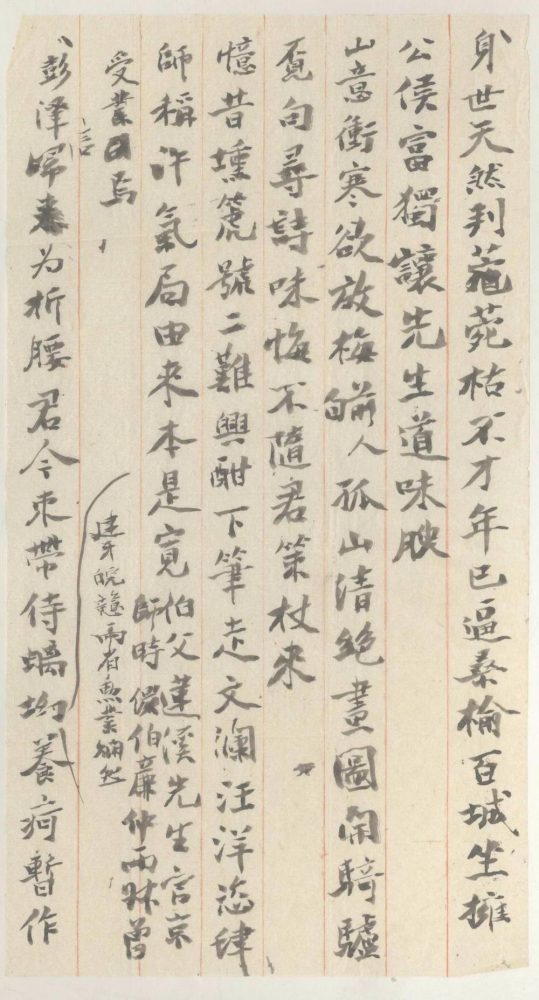 身世天然判菀枯不才年已逼桑榆百城坐擁
公侯富獨讓先生道味腴
山意衝寒欲放梅人孤山清絕畫圖開騎驢
覓句尋詩味悔不隨君策杖來
憶昔壎箎號二難興酣下筆走文瀾汪洋恣肆
師稱許氣局由来本是寬伯父蓮溪先生官京
師時偕伯廉仲兩叔曾
受業焉
彭澤歸来为折腰君今束帶侍螭坳養疴暫作